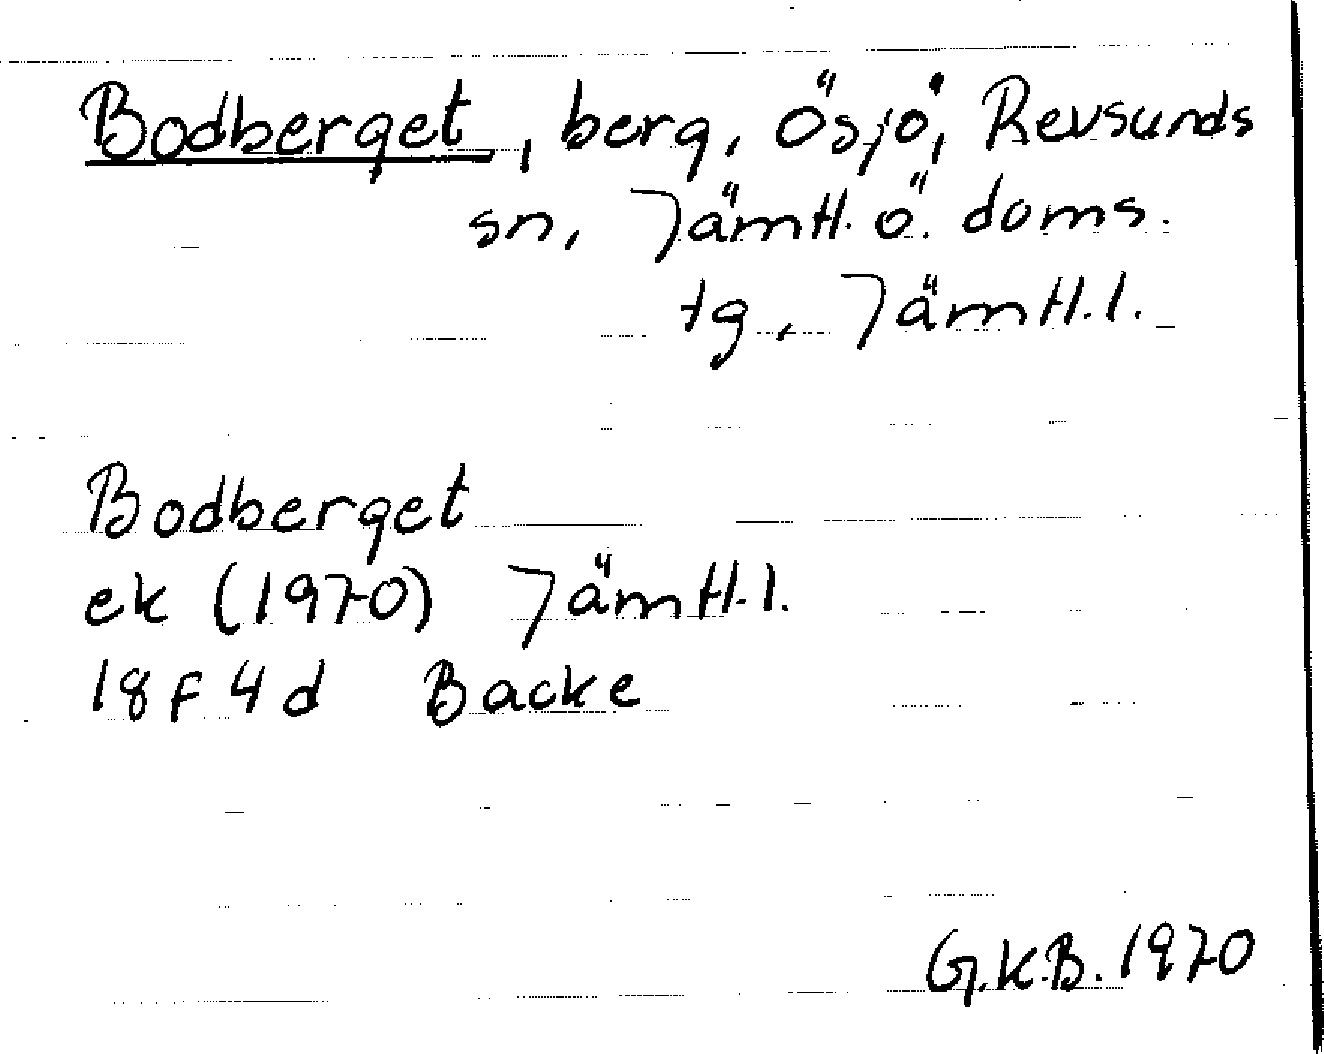 Bodberget, berg, Ösjö, Revsunds
sn, Jämtl. ö. doms.
tg, Jämtl. l.
Bodberget
ek (1970) Jämtl. l.
18F 4d Backe
G.K.B. 1970